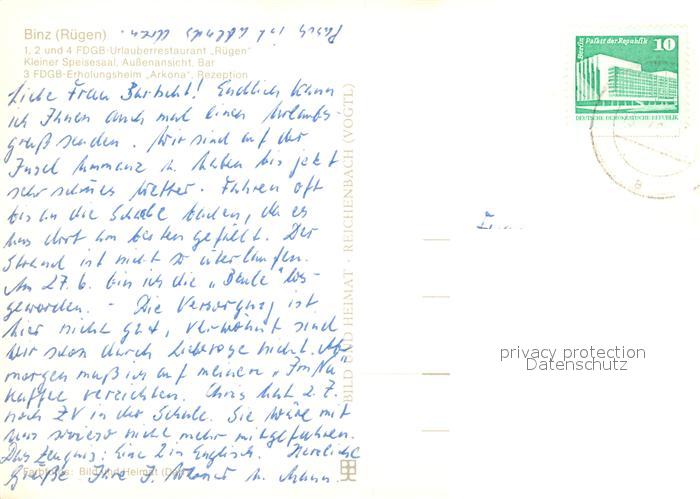 Binz (Rügen)
1, 2 und 4 FDGB-Urlauberrestaurant „Rügen"
Kleiner Speisesaal, Außenansicht, Bar
3 FDGB-Erholungsheim „Arkona", Rezeption
Liebe Frau! Endlich kann
ich Ihnen auch mal einen Urlaubs-
gruß senden. Wir sind auf der
Insel Ummanz u. haben bis jetzt
sehr schönes Wetter. Fahren oft
bis an die Schabe baden, da es
uns dort am besten gefällt. Der
Strand ist nicht so überlaufen.
Am 27.6. bin ich die „Beule" los-
geworden. - Die Versorgung ist
hier nicht gut, verwöhnt sind
wir schon durch nicht. Ab
morgen muß ich auf meinen „Im Nu"
Kaffee verzichten. Chris hat 2.7.
noch ZV in der Schule. Sie wäre mit
uns sowieso nicht mehr mitgefahren.
Das Zeugnis: Eine 2 in Englisch. Herzliche
Grüße Ihre J. u. Mann.
Farbfotos: Bild und Heimat
BILD UND HEIMAT · REICHENBACH (VOGTL)
Berlin Palast der Republik 10
DEUTSCHE DEMOKRATISCHE REPUBLIK
privacy protection
Datenschutz